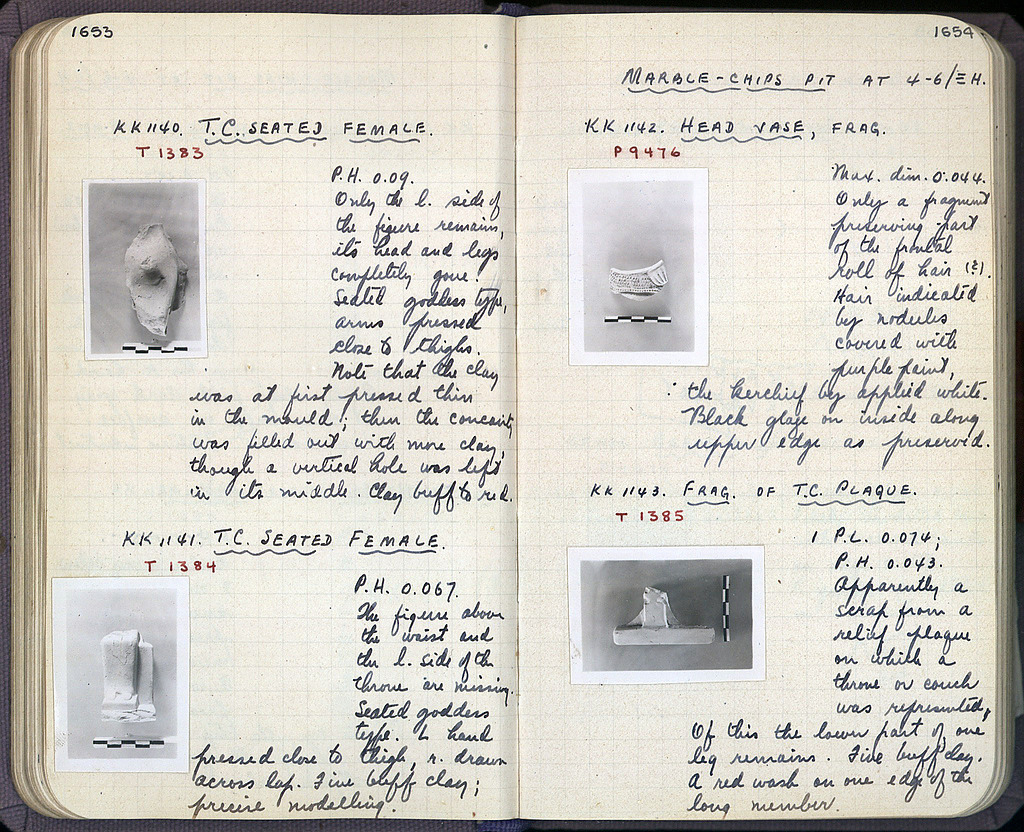 1653
KK 1140. T.C. SEATED FEMALE.
T 1383
P.H. 0.09.
Only the l. side of
the figure remains,
its head and legs
completely gone.
Seated goddess type,
arms pressed
close to thighs.
Note that the clay
was at first pressed thin
in the mould; then the concavity
was filled out with more clay,
though a vertical hole was left
in its middle. Clay buff to red.
KK 1141. T.C. SEATED FEMALE.
T 1384
P.H. 0.067.
The figure above
the waist and
the l. side of the
throne are missing.
Seated goddess
type. L hand
pressed close to thigh, r. drawn
across lap. Fine buff clay;
precise modelling.
1654
MARBLE-CHIPS PIT AT 4-6/Ξ H.
KK 1142. HEAD VASE, FRAG.
P 9476
Max. dim. 0.044.
Only a fragment
preserving part
of the frontal
roll of hair (?).
Hair indicated
by nodules
covered with
purple paint,
the kerchief by applied white.
Black glaze on inside along
upper edge as preserved.
KK 1143. FRAG. OF T.C. PLAQUE.
T 1385
P.L. 0.074;
P.H. 0.043.
Apparently a
scrap from a
relief plaque
on which a
throne or couch
was represented,
Of this the lower part of one
leg remains. Fine buff clay.
A red wash on one edge of the
long member.